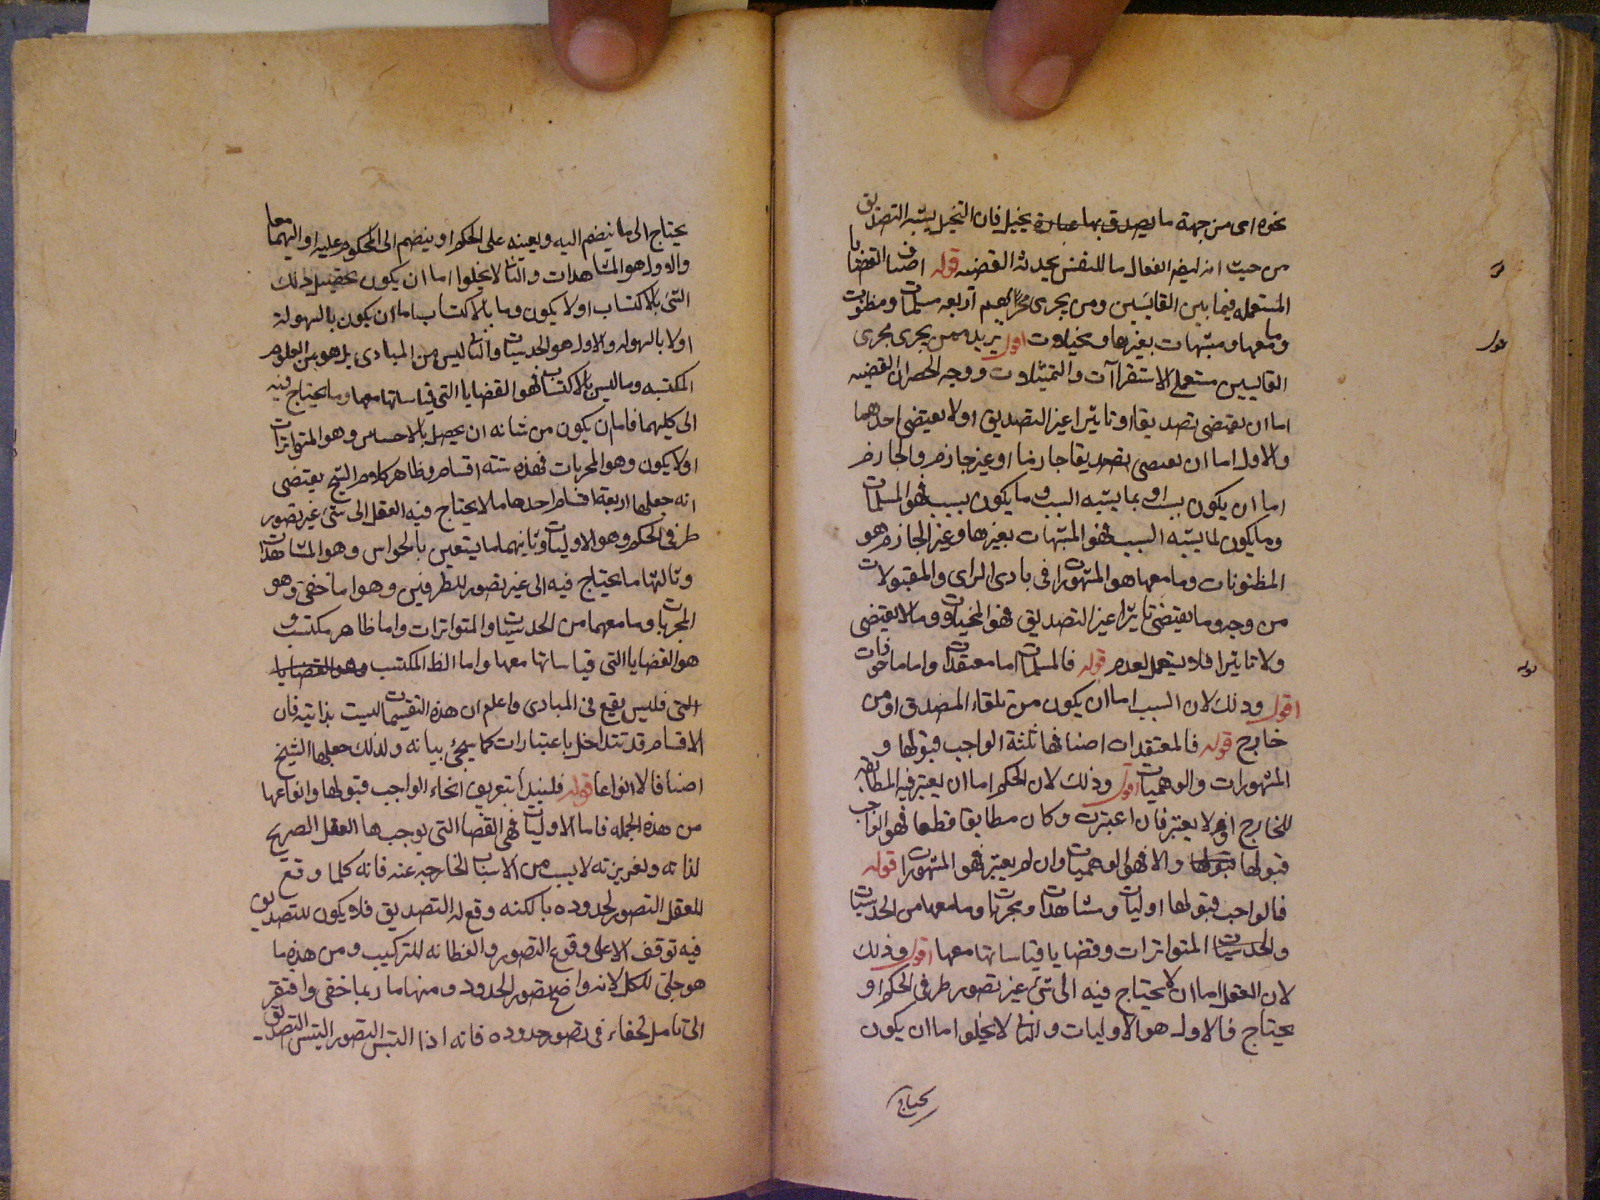 نحوه اى من جهة ما يصدق بها يخيل فان التخيل يشبه التصديق
من حيث انه ايضا انفعال ما للنفس يحدثه القضيه قوله اصناف القضايا
المستعمله فيما بين القائسين ومن يجرى مجراهم اربعه مسلمات ومظنونات
وما معها ومشبهات بغيرها ومخيلات اقول يريد بمن يجرى مجرى
القايسين مستعملى الاستقراآت والتمثيلات ووجه الحصر ان القضيه
اما ان يقتضى تصديقا او تاثيرا غير التصديق او لا يقتضى احدهما
والاول اما ان يقتضى تصديقا جازما او غير جازم والجازم
اما ان يكون بسبب او بما يشبه السبب وما يكون بسبب فهو المسلمات
وما يكون لما يشبه السبب فهو المشبهات بغيرها وغير الجازم هو
المظنونات وما معها هو المشهورات فى بادى الراى والمقبولات
من وجه وما يقتضى تاثيرا غير التصديق فهو المخيلات وما لا يقتضى
ولا تاثيرا فلا يستعمل لعدم قوله فالمسلمات اما معتقدات واما ماخوذات
اقول وذلك لان السبب اما ان يكون من تلقاء المصدق او من
خارج قوله فالمعتقدات اصنافها ثلثة الواجب قبولها و
المشهورات والوهميات اقول وذلك لان الحكم اما ان يعتبر فيه المطابقه
للخارج او لا يعتبر فان اعتبرت وكان مطابقا قطعا فهو الواجب
قبولها والا فهو الوهميات وان لم يعتبر فهو المشهورات قوله
فالواجب قبولها اوليات ومشاهدات ومجربات وما معها من الحدسيات
والحدسيات المتواترات وقضايا قياساتها معها اقول وذلك
لان العقل اما ان لا يحتاج فيه الى شئ غير تصور طرفى الحكم او
يحتاج فالاول هو الاوليات والثانى لا يخلوا اما ان يكون
يحتاج
يحتاج الى ما ينضم اليه ويعينه على الحكم او ينضم الى المحكوم عليه او اليهما معا
والاول هو المشاهدات والثانى لا يخلوا اما ان يكون تحصيل ذلك
الشئ بالاكتساب او لا يكون وما بالاكتساب اما ان يكون بالسهولة
او لا بالسهوله والاول هو الحدسيات والثانى ليس من المبادى بل هو من العلوم
المكتسبه وما ليس بالاكتساب فهو القضايا التى قياساتها معها وما يحتاج فيه
الى كليهما فاما ان يكون من شانه ان يحصل بالاحساس وهو المتواترات
او لا يكون وهو المجربات فهذه ستة اقسام وظاهر كلام الشيخ يقتضى
انه جعلها اربعة اقسام احدها ما لا يحتاج فيه العقل الى شئ غير تصور
طرفى الحكم وهو الاوليات وثانيهما ما يستعين بالحواس وهو المشاهدات
وثالثها ما يحتاج فيه الى غير تصور الطرفين وهو اما خفى وهو
المجربات وما معها من الحدسيات والمتواترات واما ظاهر مكتسب و
هو القضايا التى قياساتها معها واما الظ المكتسب وهو القضايا
التى فليس يقع فى المبادى واعلم ان هذه التقسيمات ليست بذاتيه فان
الاقسام قد تتداخل باعتبارات كما سيجئ بيانه ولذلك جعلها الشيخ
اصنافا لا انواعا قوله فلنبدأ بتعريف انحاء الواجب قبولها وانواعها
من هذه الجمله فاما الاوليات فهى القضايا التى يوجبها العقل الصريح
لذاته ولغريزته لا بسبب من الاسباب الخارجة عنه فانه كلما وقع
للعقل التصور لحدوده بالكنه وقع له التصديق فلا يكون للتصديق
فيه توقف الا على وقوع التصور والفطانه للتركيب ومن هذه ما
هو جلى للكل لانه واضح تصور الحدود ومنها ما ربما خفى وافتقر
الى تامل لخفاء فى تصور حدوده فانه اذا التبس التصور التبس التصديق